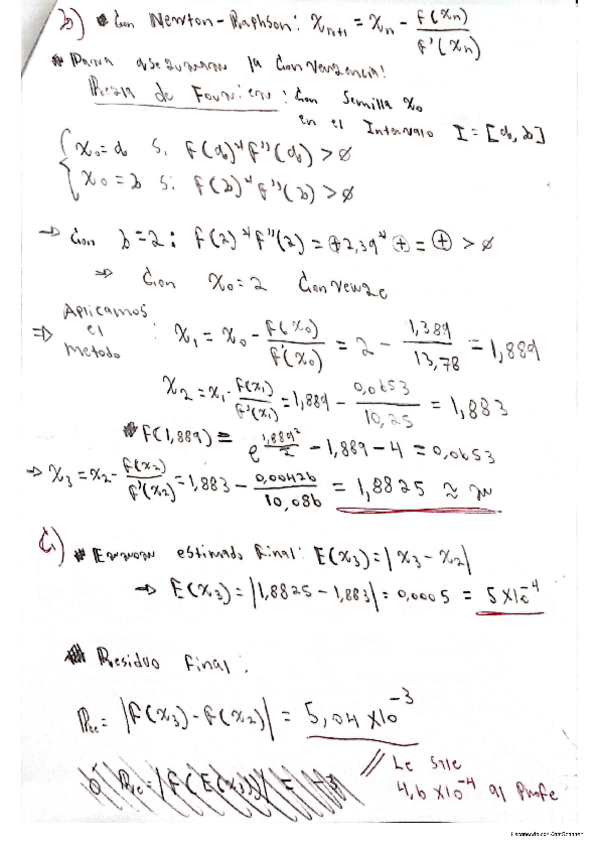 b) * Con Newton-Raphson: x_{n+1} = x_n - f(x_n)/f'(x_n)
* Para asegurarnos la Convergencia:
Regla de Fourier: Con Semilla x_0
en el Intervalo I = [a, b]
{ x_0 = a Si f(a)*f''(a) > 0
x_0 = b Si f(b)*f''(b) > 0
→ Con b = 2: f(2)*f''(2) = ⊕2,39*⊕ = ⊕ > 0
⇒ Con x_0 = 2 Converge
⇒ Aplicamos el Metodo : x_1 = x_0 - f(x_0)/f'(x_0) = 2 - 1,389/13,78 = 1,889
x_2 = x_1 - f(x_1)/f'(x_1) = 1,889 - 0,0653/10,25 = 1,883
* f(1,889) = e^{1,889²/2} - 1,889 - 4 = 0,0653
→ x_3 = x_2 - f(x_2)/f'(x_2) = 1,883 - 0,00426/10,086 = 1,8825 ≈ r
C) * Error estimado Final: E(x_3) = |x_3 - x_2|
→ E(x_3) = |1,8825 - 1,883| = 0,0005 = 5x10^{-4}
* Residuo Final:
R = |f(x_3) - f(x_2)| = 5,04x10^{-3}
// Le Sale
4,6x10^{-4} al Profe
Escaneado con CamScanner